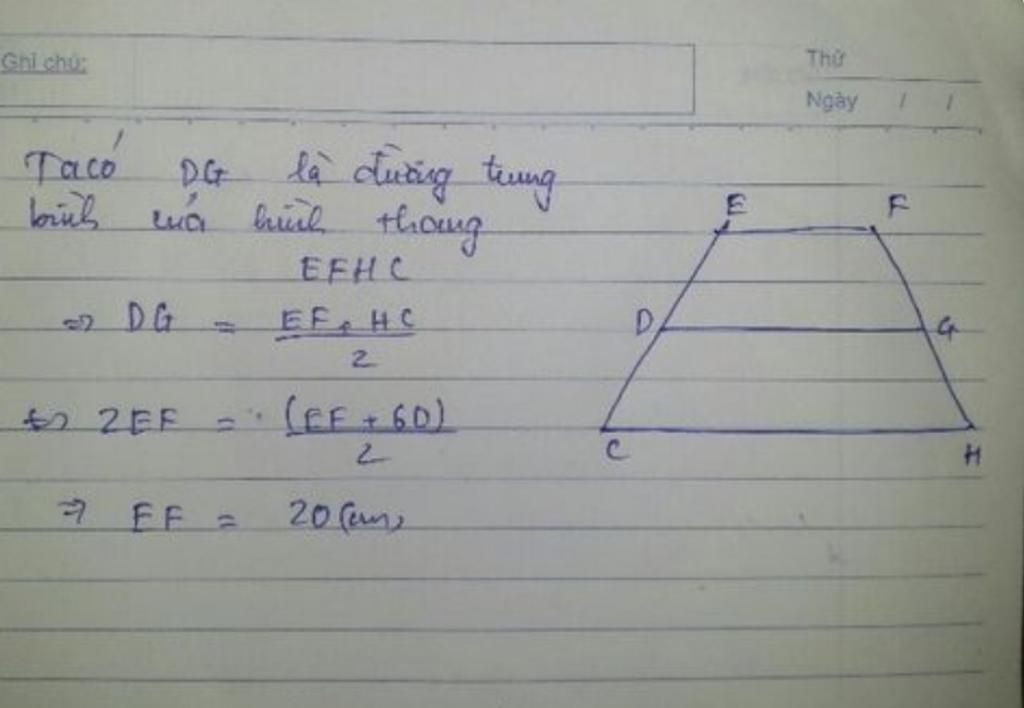 Ghi chú:
Thứ
Ngày / /
Ta có DG là đường trung
bình của hình thang
EFHC
=> DG = (EF + HC) / 2
<=> 2EF = (EF + 60) / 2
=> EF = 20 (cm)
E F
D G
C H